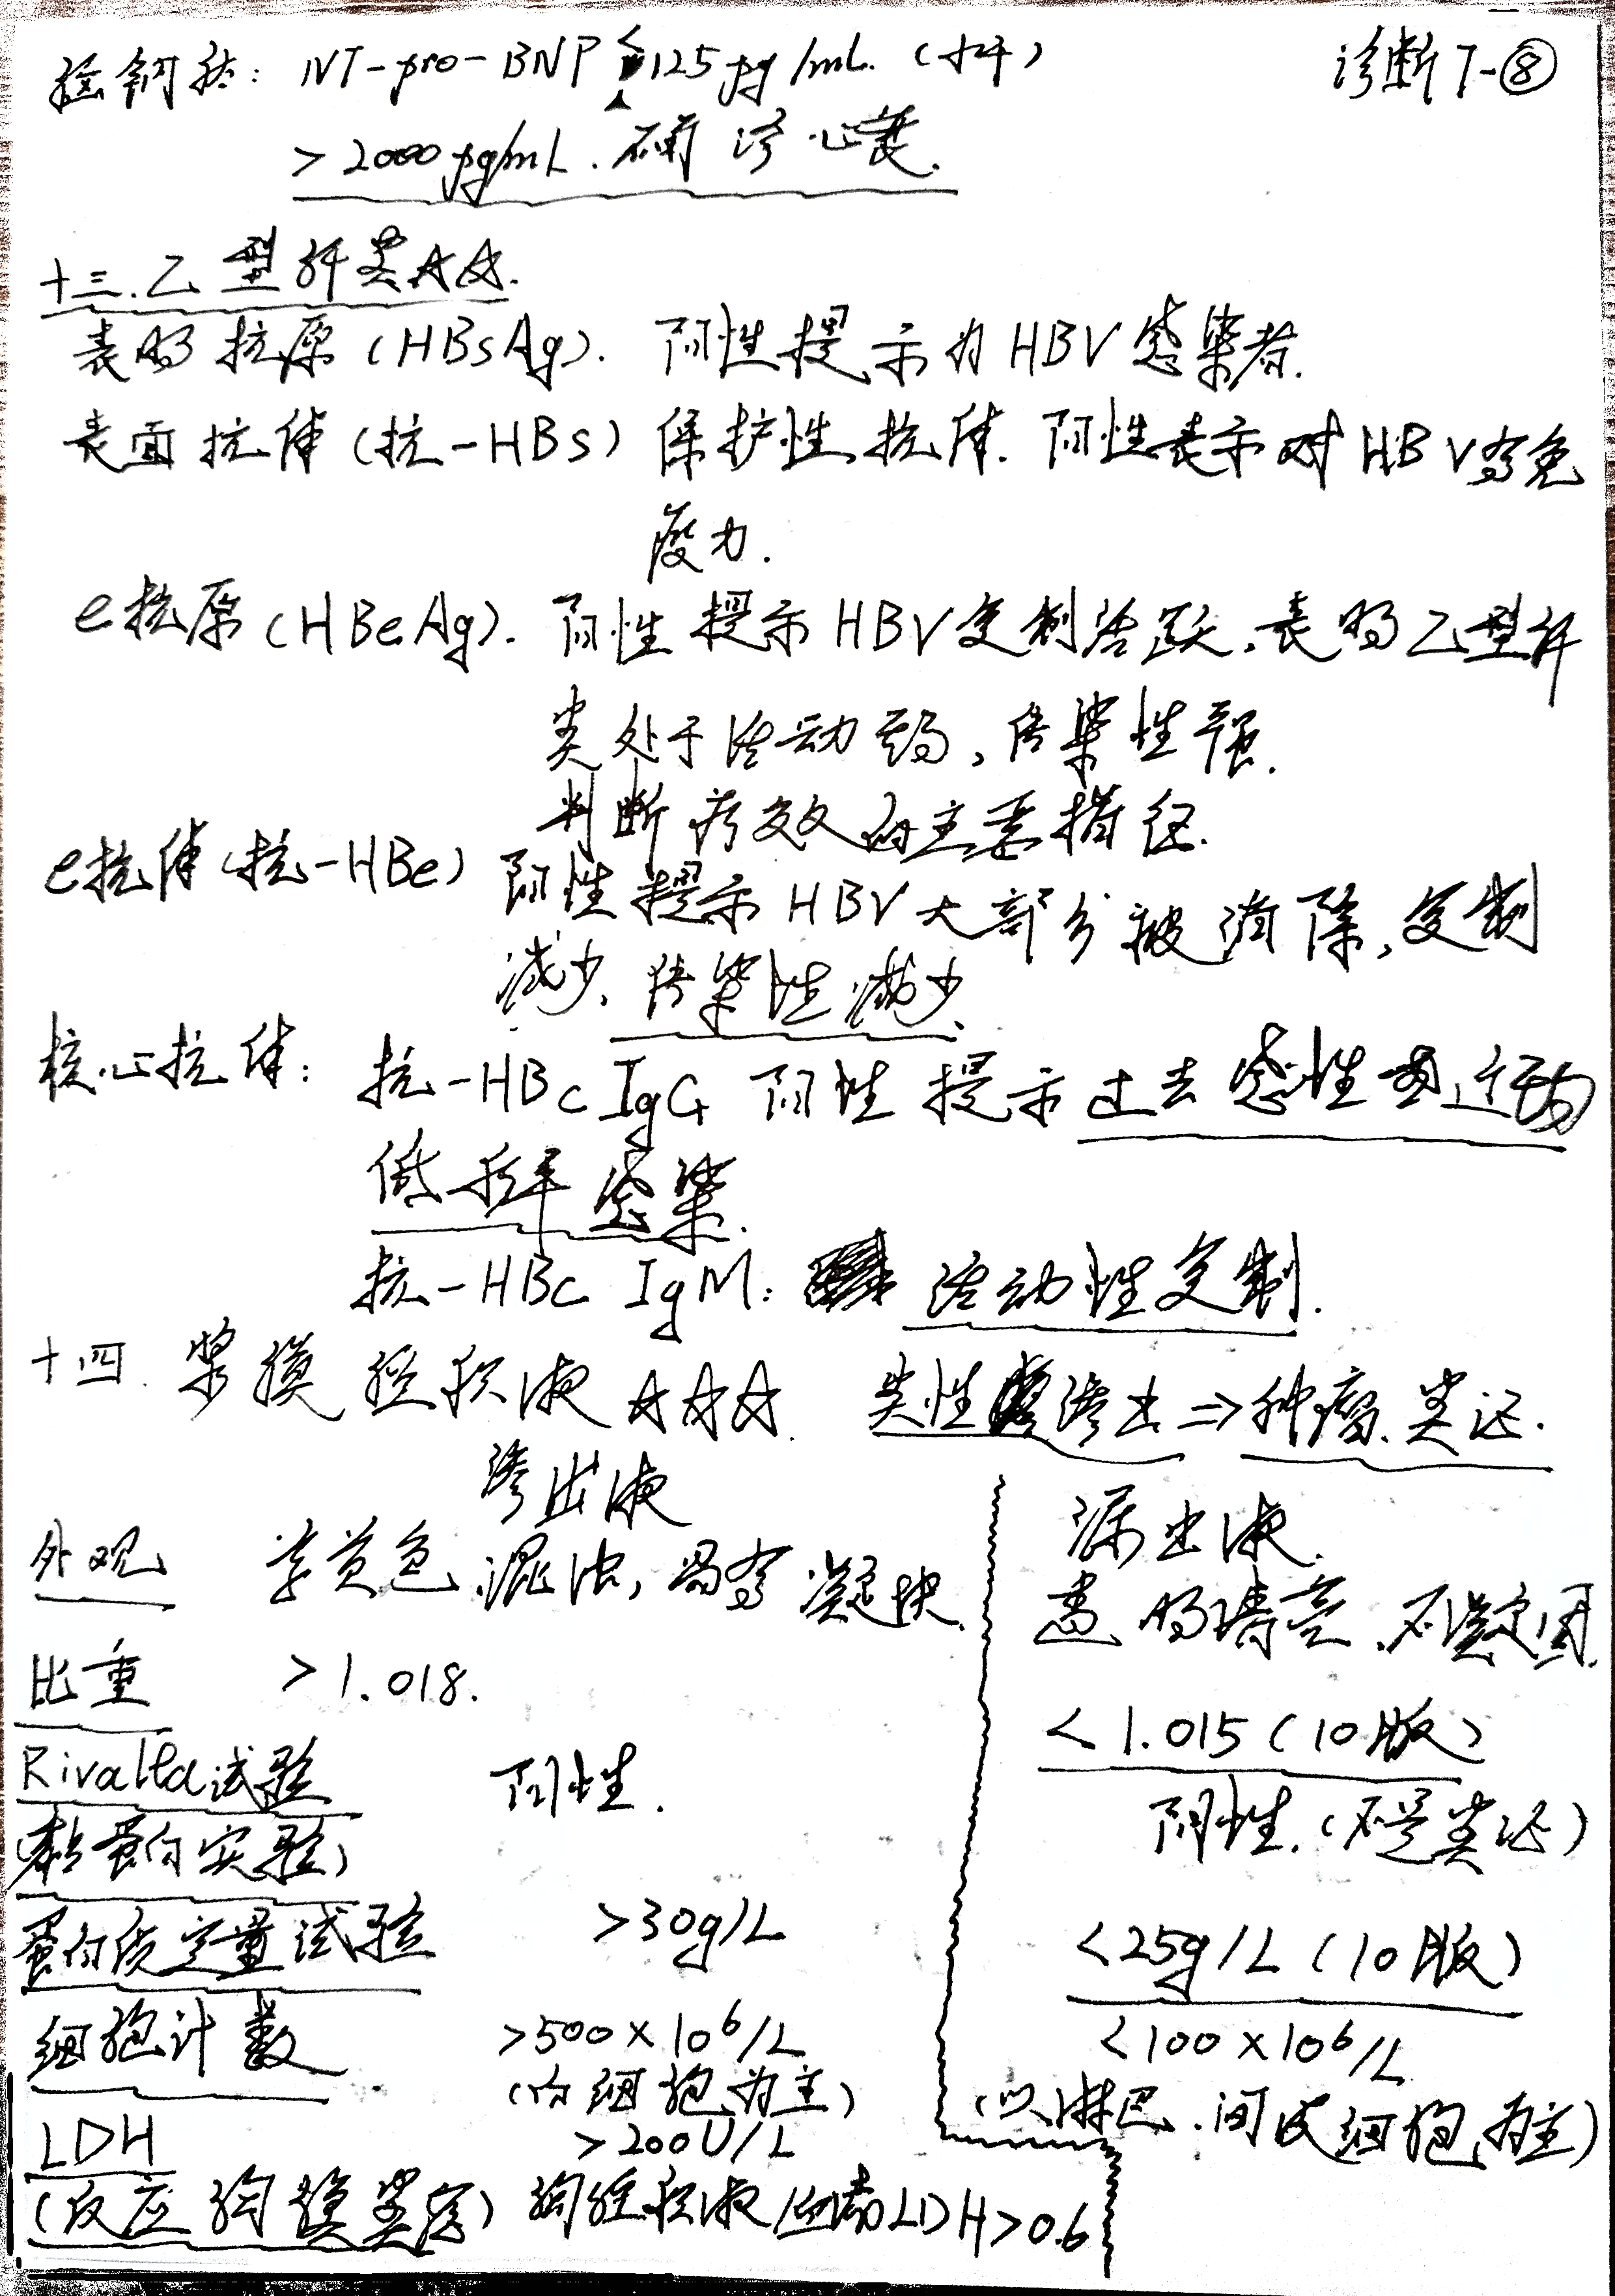 诊断7-⑧
拉钠肽: NT-pro-BNP ≤125pg/mL.
>2000pg/mL. 确诊心衰.
十三.乙型肝炎☆☆.
表明抗原(HBsAg). 阳性提示为HBV感染者.
表面抗体(抗-HBs) 保护性抗体. 阳性表示对HBV有免
疫力.
e抗原(HBeAg). 阳性提示HBV复制活跃,表明乙型肝
炎处于活动期,传染性强.
判断疗效的主要指征.
e抗体(抗-HBe) 阳性提示HBV大部分被消除,复制
减少,传染性减少.
核心抗体: 抗-HBc IgG 阳性提示过去感性或近期
低水平感染.
抗-HBc IgM: 活动性复制.
十四.浆膜腔积液☆☆☆. 炎性渗出⇒肿瘤.炎症.
渗出液 漏出液.
外观 草黄色.混浊,易有凝块. 透明清亮.不凝固.
比重 >1.018. <1.015(10版)
Rivalta试验 阳性. 阴性.(不是炎症)
(黏蛋白实验)
蛋白质定量试验 >30g/L <25g/L(10版)
细胞计数 >500×10⁶/L <100×10⁶/L
(白细胞为主) (以淋巴.间皮细胞为主)
LDH >200U/L
(反应胸膜炎症) 胸腔积液/血清LDH>0.6